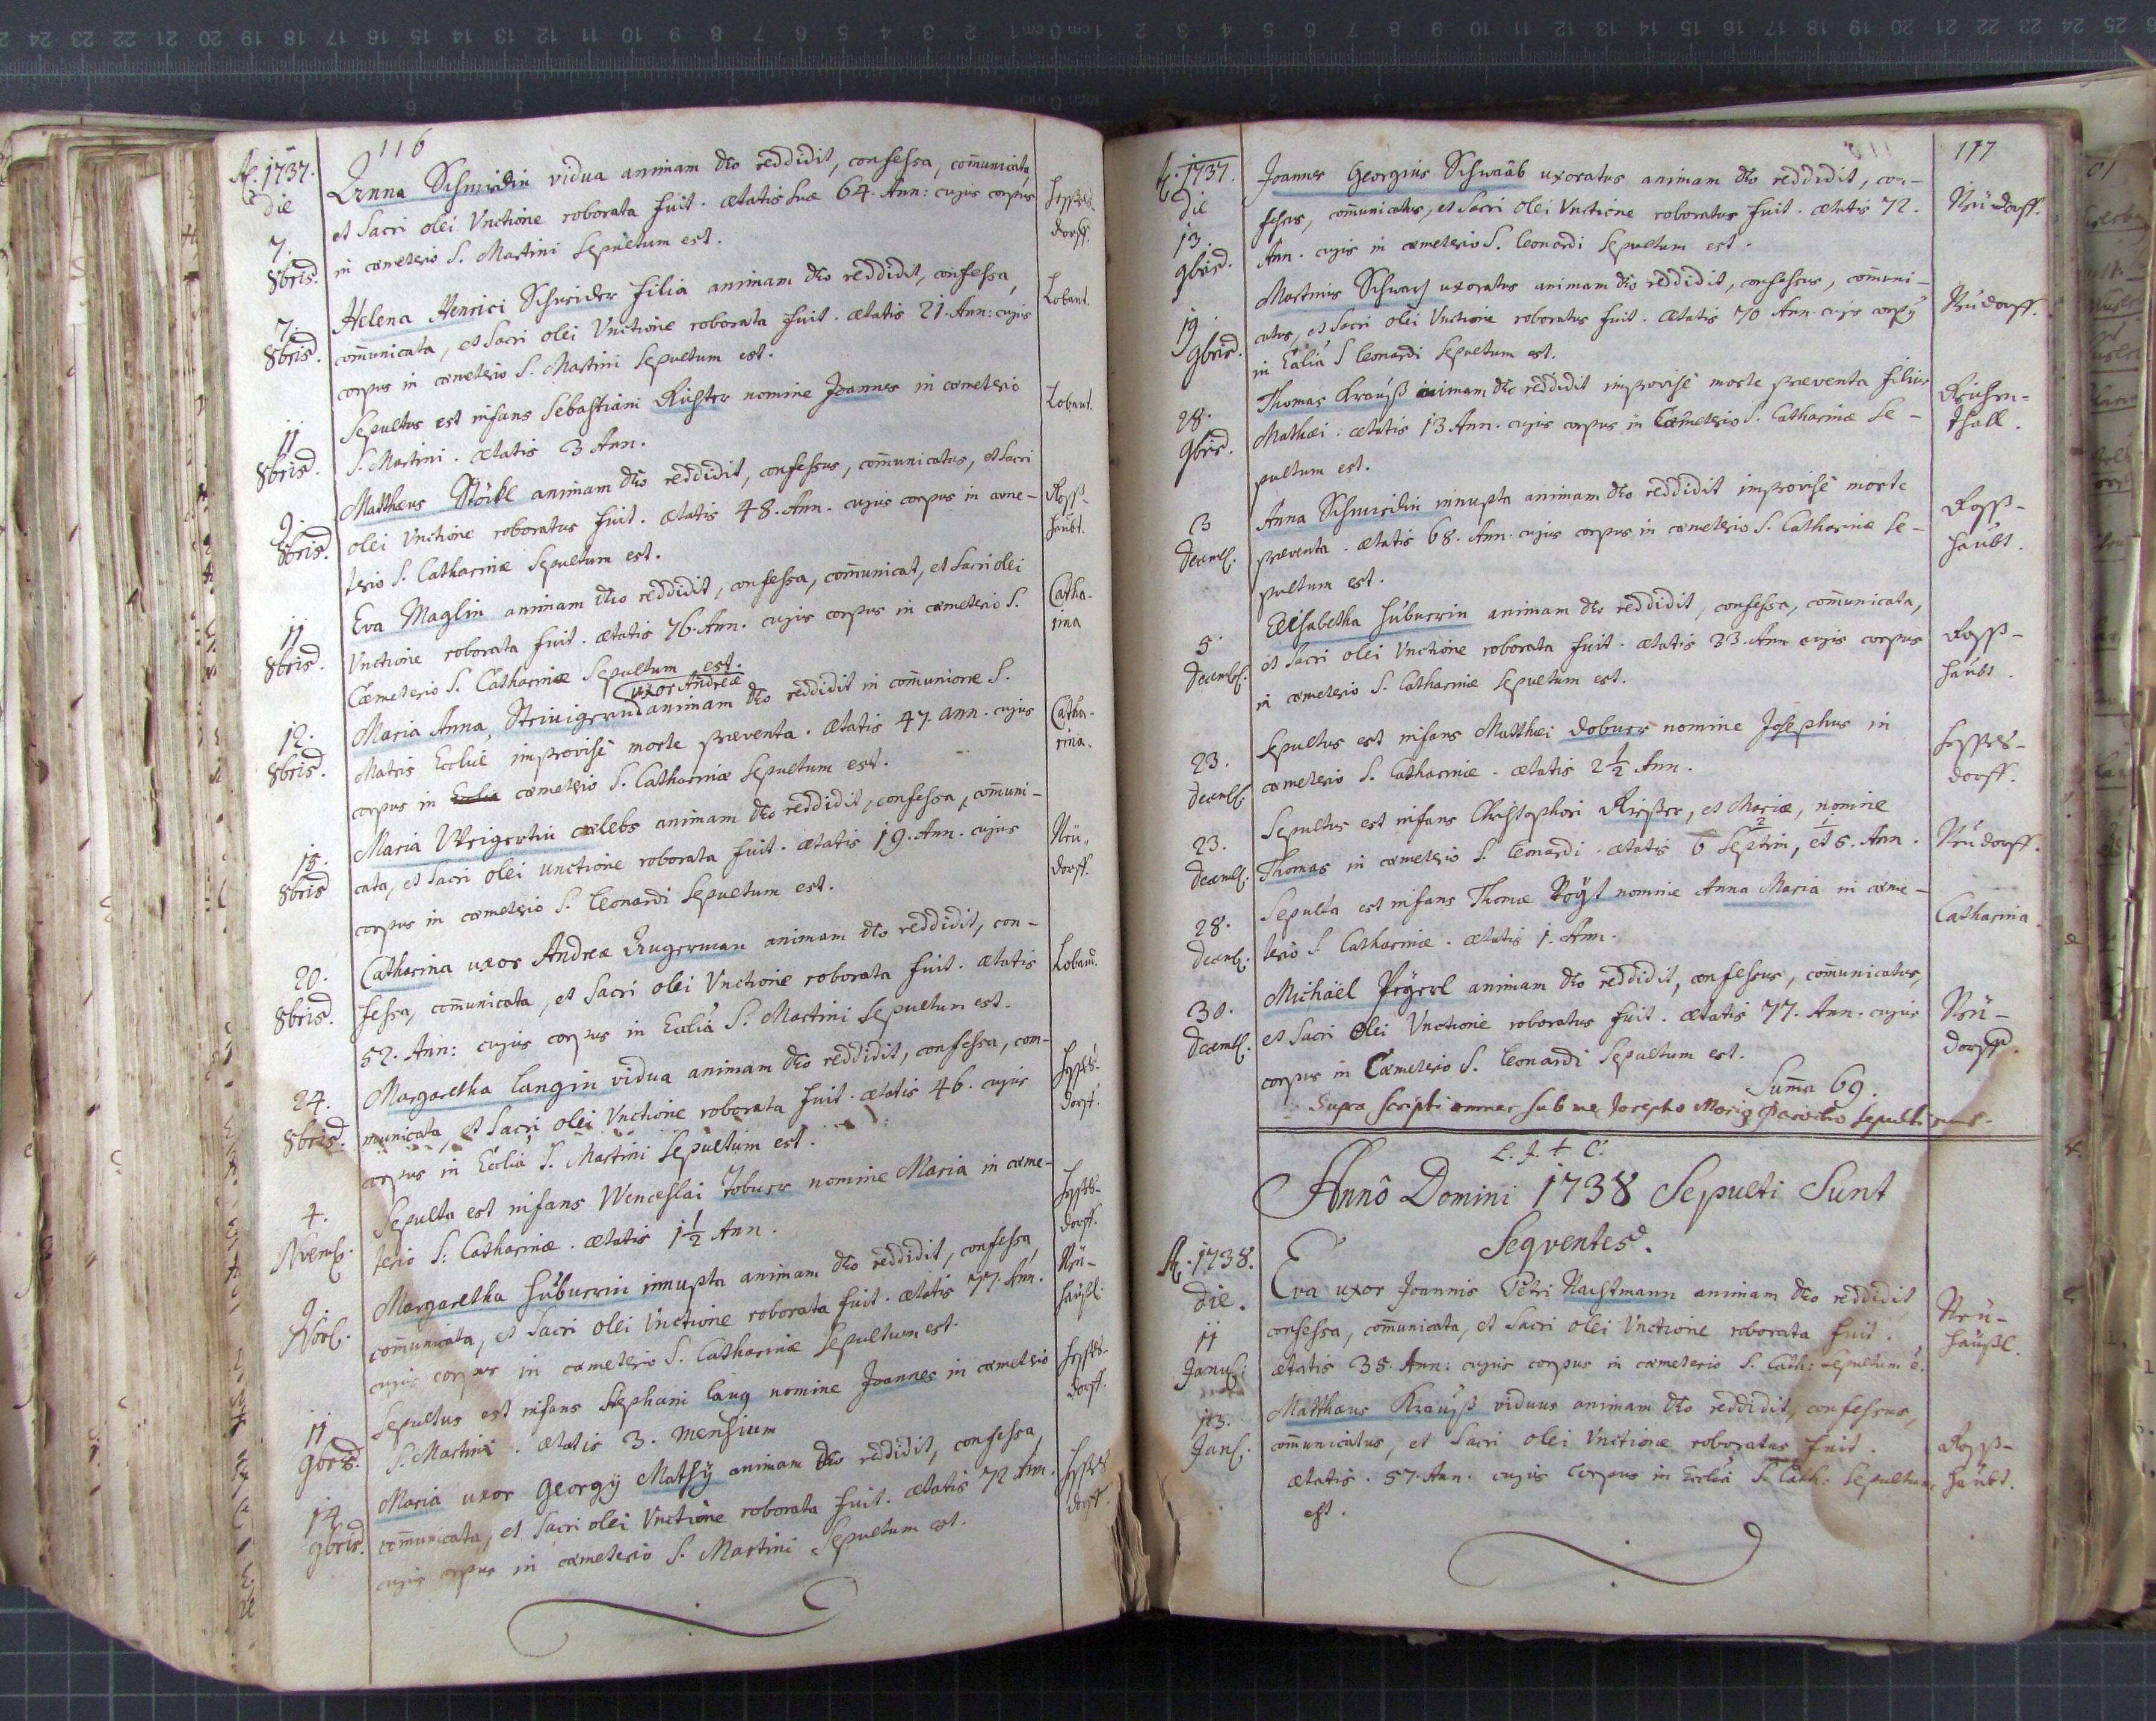 116
A. 1737.
die
Anna Schmidin vidua animam Deo reddidit, confessa, com̄unicata,
et Sacri olei Unctione roborata fuit. ætatis suæ 64. Ann: cujus corpus
in cœmeterio S. Martini Sepultum est.
7.
8bris.
dorff.
Helena Henrici Schneider filia animam Deo reddidit, confessa,
com̄unicata, et Sacri olei Unctione roborata fuit. ætatis 21. Ann: cujus
corpus in cœmeterio S. Martini Sepultum est.
7.
8bris.
Lobant.
Sepultus est infans Sebastiani Richter nomine Joannes in cœmeterio
S. Martini. ætatis 3 Ann.
11
8bris.
Lobant.
Matthæus Stöckl animam Deo reddidit, confessus, com̄unicatus, et Sacri
olei Unctione roboratus fuit. ætatis 48. Ann. cujus corpus in cœme-
terio S. Catharinæ Sepultum est.
9.
8bris.
Roß-
haubt.
Eva Maglin animam Deo reddidit, confessa, com̄unicat, et Sacri olei
Unctione roborata fuit. ætatis 76. Ann. cujus corpus in cœmeterio S.
Cœmeterio S. Catharinæ Sepultum est.
11
8bris.
Catha-
rina
uxor Andreæ
Maria Anna, animam Deo reddidit in com̄unione S.
Matris Eccliæ improvisè morte præventa. ætatis 47. ann. cujus
corpus in Ecclia cœmeterio S. Catharinæ Sepultum est.
12.
8bris.
Catha-
rina.
Maria Weigertin cœlebs animam Deo reddidit, confessa, com̄uni-
cata, et Sacri olei unctione roborata fuit. ætatis 19. Ann. cujus
corpus in cœmeterio S. Leonardi Sepultum est.
15.
8bris
Neü-
dorff.
Catharina uxor Andreæ Zugerman animam Deo reddidit, con-
fessa, com̄unicata, et Sacri olei Unctione roborata fuit. ætatis
52. Ann: cujus corpus in Ecclia S. Martini Sepultum est.
20.
8bris.
Loband.
Margaretha Langin vidua animam Deo reddidit, confessa, com-
municata, et Sacri olei Unctione roborata fuit. ætatis 46. cujus
corpus in Ecclia S. Martini Sepultum est.
24.
8bris.
dorff.
Sepulta est infans Wenceslai Dobuer nomine Maria in cœme-
terio S: Catharinæ. ætatis 1½ Ann.
4.
Novemb.
dorff.
Margaretha Hüburrin innupta animam Deo reddidit, confessa,
com̄unicata, et Sacri olei Unctione roborata fuit. ætatis 77. Ann.
cujus corpus in cœmeterio S. Catharinæ Sepultum est.
9
Neü-
häußl.
Sepultus est infans Stephani Lang nomine Joannes in cœmeterio
S. Martini. ætatis 3. mensium
11
9bris.
dorff.
Maria uxor Georgÿ Mathÿ animam Deo reddidit, confessa,
com̄unicata, et Sacri olei Unctione roborata fuit. ætatis 72 Ann.
cujus corpus in cœmeterio S. Martini Sepultum est.
14
9bris.
dorff.
117
A. 1737.
die
Joannes Georgius Schwaab uxoratus animam Deo reddidit, con-
fessus, com̄unicatus, et Sacri olei Unctione roboratus fuit. ætatis 72.
Ann. cujus in cœmeterio S. Leonardi Sepultum est.
13.
9bris.
Neüdorff.
Martinus Schwarz uxoratus animam Deo reddidit, confessus, com̄uni-
catus, et Sacri olei Unctione roboratus fuit. ætatis 70 Ann. cujus corpÿ
in Ecclia S Leonardi Sepultum est.
19.
9bris.
Neüdorff.
Thomas Krauß animam Deo reddidit improvisè morte præventa filius
Mathæi. ætatis 13 Ann. cujus corpus in Cœmeterio S. Catharinæ Se-
pultum est.
28.
9bris.
Reichen-
thall.
Anna Schmidin innupta animam Deo reddidit improvisè morte
præventa. ætatis 68. Ann. cujus corpus in cœmeterio S. Catharinæ Se-
pultum est.
3
Decemb:
Roß-
haübt.
Elisabetha Hüburrin animam Deo reddidit, confessa, com̄unicata,
et Sacri olei Unctione roborata fuit. ætatis 33. Ann cujus corpus
in cœmeterio S. Catharinæ Sepultum est.
5.
Decemb:
Roß-
haübt.
Sepultus est infans Matthæi Dobuer nomine Josephus in
cœmeterio S. Catharinæ. ætatis 2½ Ann.
23.
Decemb:
dorff.
Sepultus est infans Christophori et Mariæ, nomine
Thomas in cœmeterio S. Leonardi. ætatis 6 Septim, et 5. Ann.
23.
Decemb:
Neüdorff.
Sepulta est infans Thomæ Vogt nomine Anna Maria in cœme-
terio S. Catharinæ. ætatis 1. Ann.
28.
Decemb:
Catharina.
Michaël animam Deo reddidit, confessus, com̄unicatus,
et Sacri Olei Unctione roboratus fuit. ætatis 77. Ann. cujus
corpus in Cœmeterio S. Leonardi Sepultum est.
30.
Decemb:
Neü-
dorff.
Sum̄a 69.
Supra scripti omnes sub me Josepho Parocho sepulti sunt.
Annô Domini 1738 Sepulti Sunt
Seqventes.
A. 1738.
die.
Eva uxor Joannis Petri Nachtmann animam Deo reddidit
confessa, com̄unicata, et Sacri olei Unctione roborata fuit.
ætatis 35. Ann: cujus corpus in cœmeterio S. Cath: Sepultum e.
11
Janu:
Neü-
häußl.
Matthæus Krauß viduus animam Deo reddidit, confessus,
com̄unicatus, et Sacri olei Unctione roboratus fuit.
ætatis. 57. Ann. cujus corpus in Ecclia S. Cath: Sepultum
est.
13.
Jan:
Roß-
haübt.